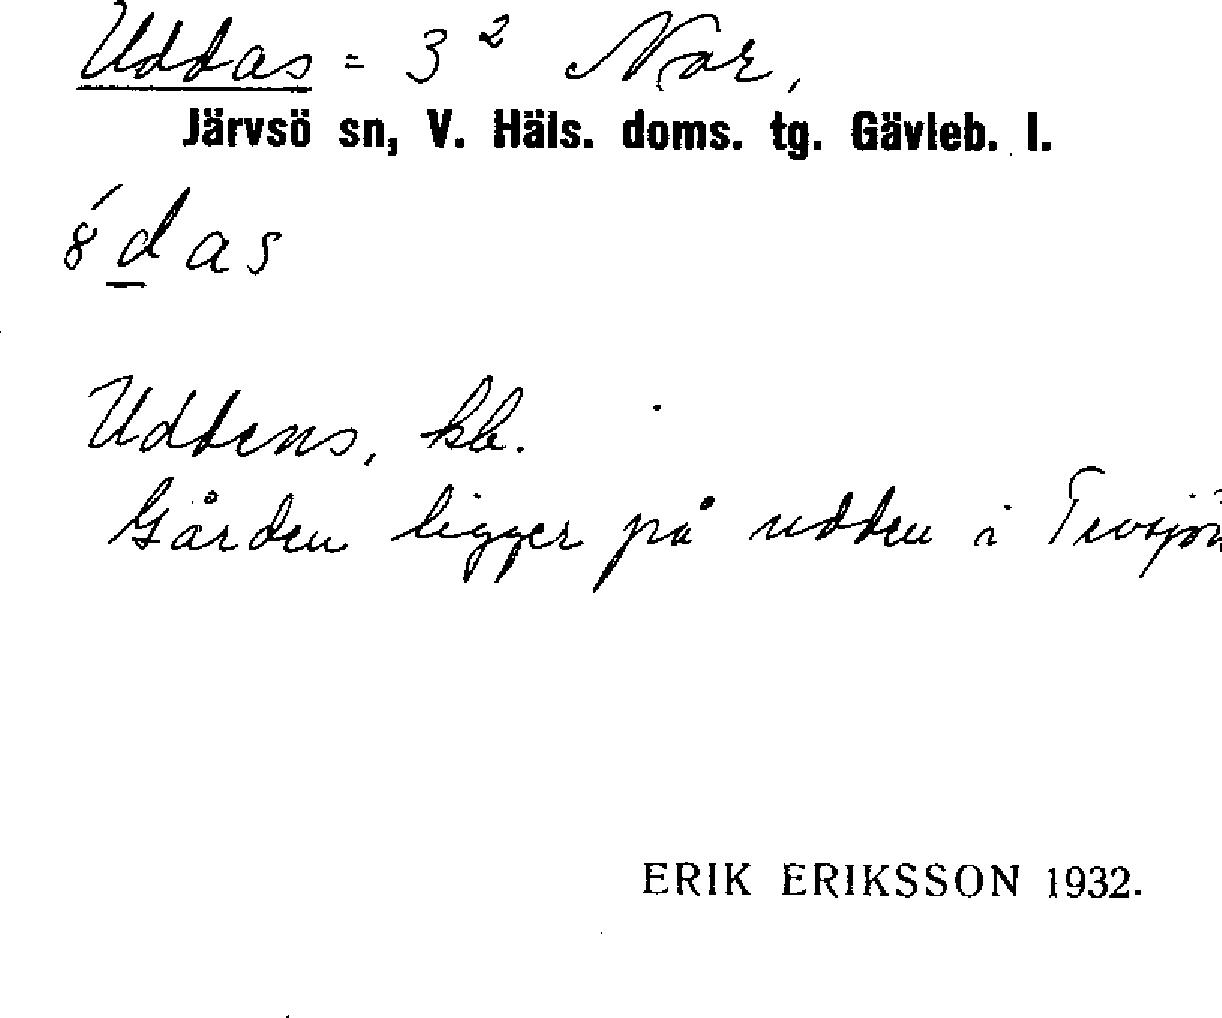 Uddas = 3² Nor,
Järvsö sn, V. Häls. doms. tg. Gävleb. l.
8́das
Uddens, kb.
Gården ligger på udden i
ERIK ERIKSSON 1932.